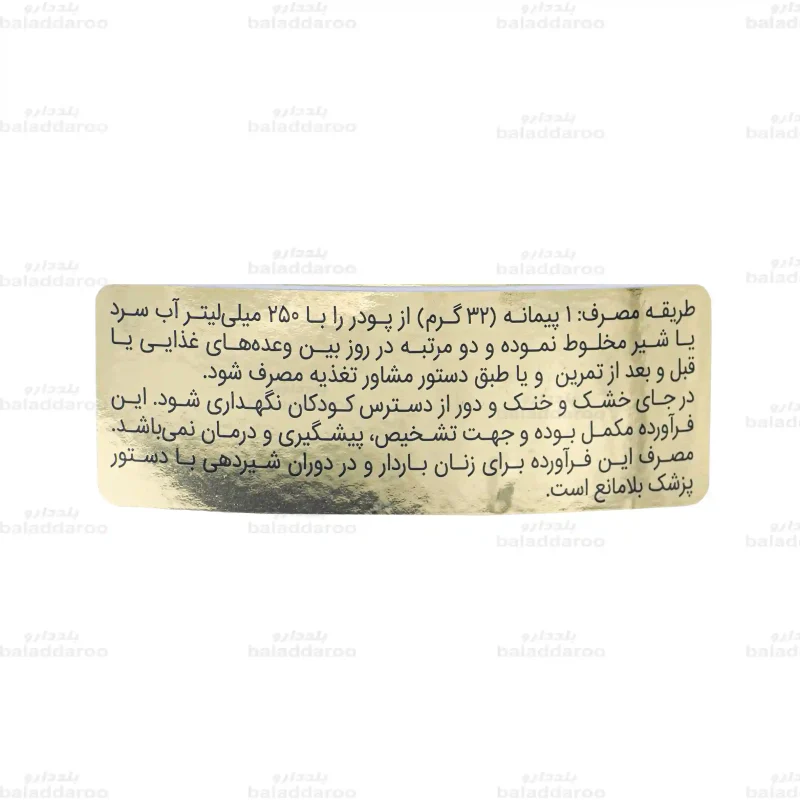 طریقه مصرف: ۱ پیمانه (۳۲ گرم) از پودر را با ۲۵۰ میلی‌لیتر آب سرد
یا شیر مخلوط نموده و دو مرتبه در روز بین وعده‌های غذایی یا
قبل و بعد از تمرین و یا طبق دستور مشاور تغذیه مصرف شود.
در جای خشک و خنک و دور از دسترس کودکان نگهداری شود. این
فرآورده مکمل بوده و جهت تشخیص، پیشگیری و درمان نمی‌باشد.
مصرف این فرآورده برای زنان باردار و در دوران شیردهی با دستور
پزشک بلامانع است.
بلددارو
baladdaroo